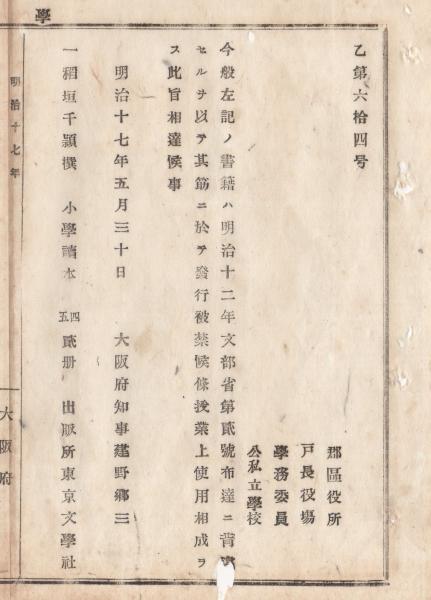 乙第六拾四号
郡區役所
戸長役塲
學務委員
公私立學校
今般左記ノ書籍ハ明治十二年文部省第貳號布達ニ背戻
セルヲ以テ其筋ニ於テ發行被禁候條授業上使用相成ラ
ス此旨相達候事
明治十七年五月三十日 大阪府知事建野郷三
一稲垣千頴撰 小學讀本 四五 貳册 出版所東京文學社
學
明治十七年
大阪府